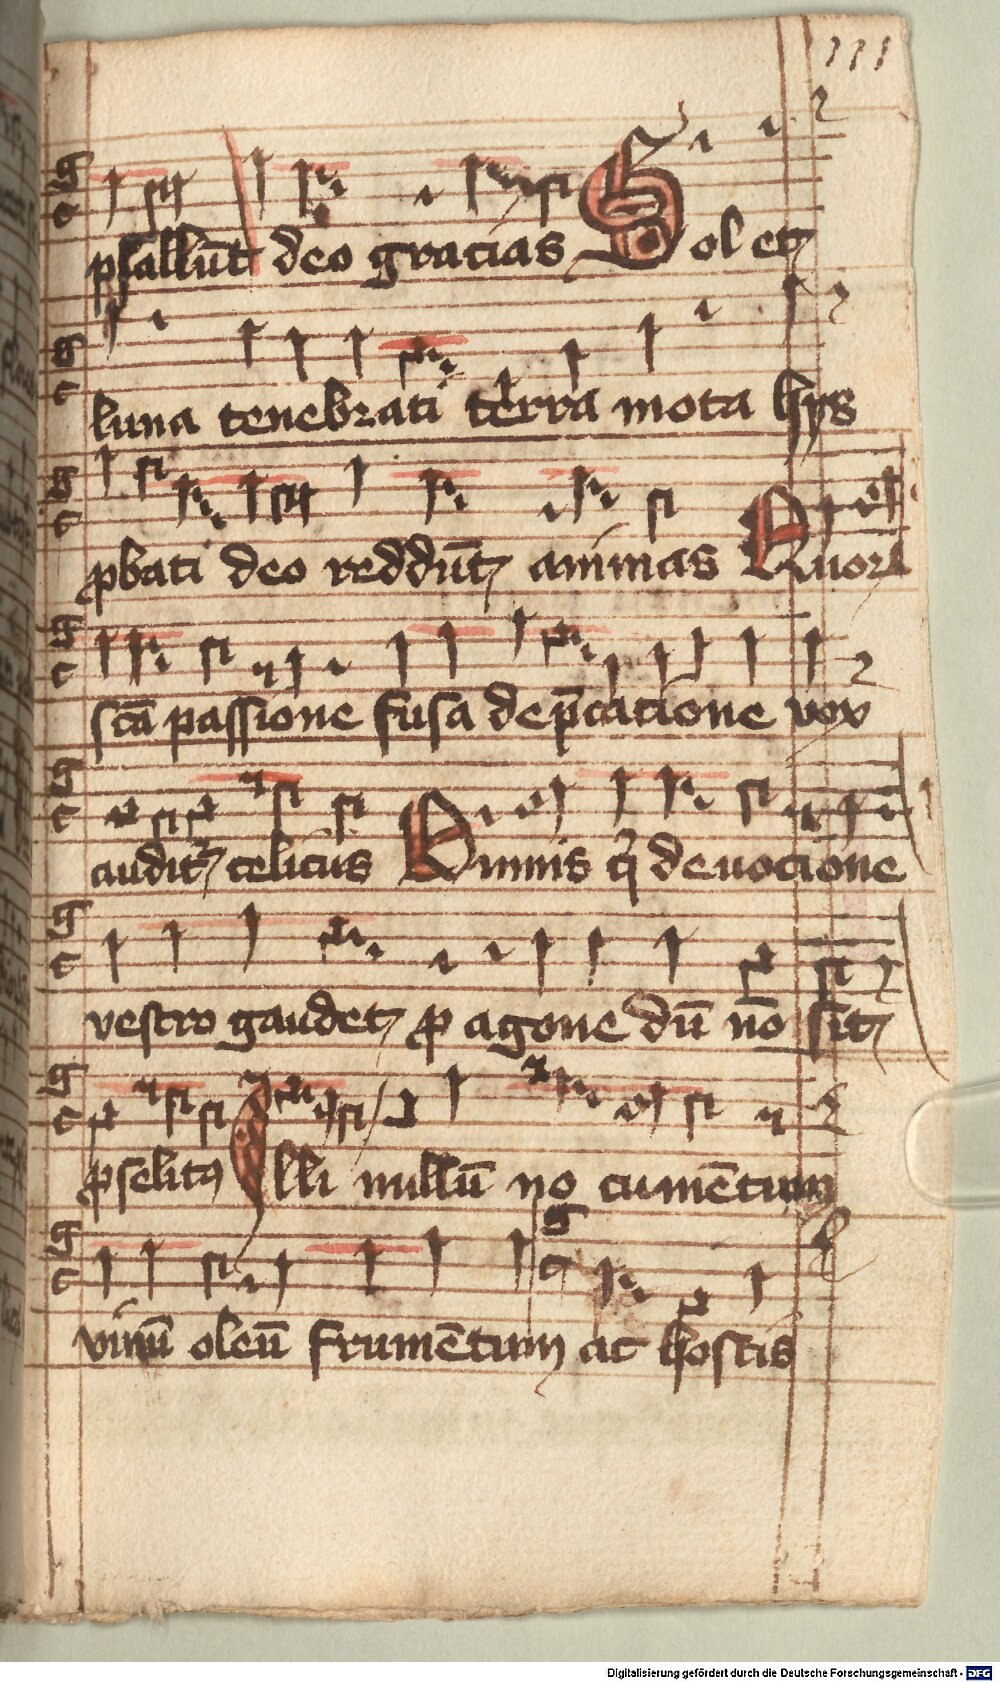 111
psallūt deo gracias Sol et
luna tenebrati terra mota hys
ꝓbati deo reddūt animas Quorū
scā passione fusa dep̄catione vox
audit᷑ celicus Omnis q̄ deuocione
vestro gaudet ꝓ agone dū nō sit
ꝓselitꝰ Illi nullū no cumētum
vinū oleū frumētum ac hostis
Digitalisierung gefördert durch die Deutsche Forschungsgemeinschaft - DFG